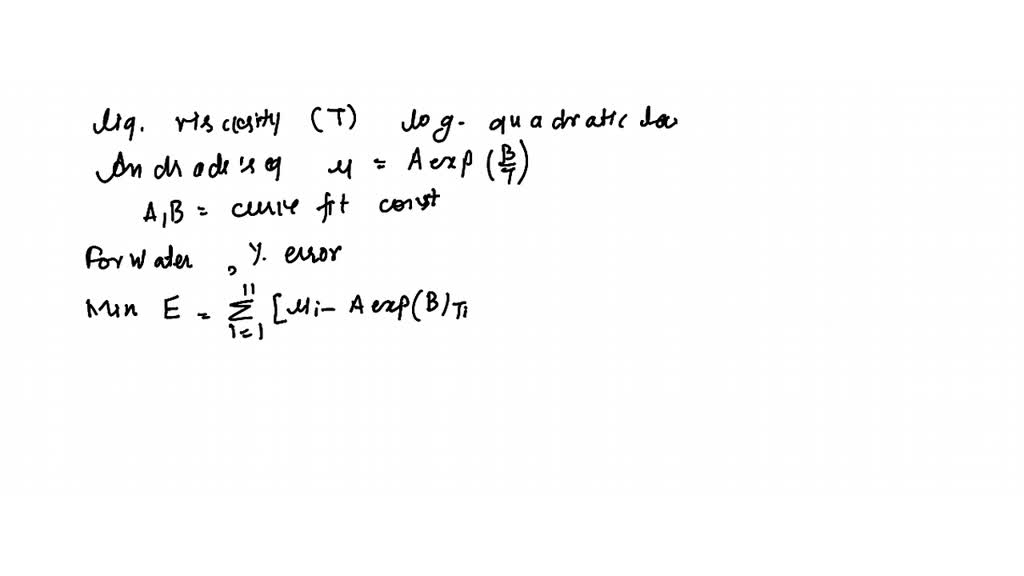 liq. viscosity (T) log-quadratic law
Andrade's eq μ = A exp (B/T)
A,B = curve fit const
For water, % error
Min E = Σ i=1 11 [μi - A exp(B)Ti